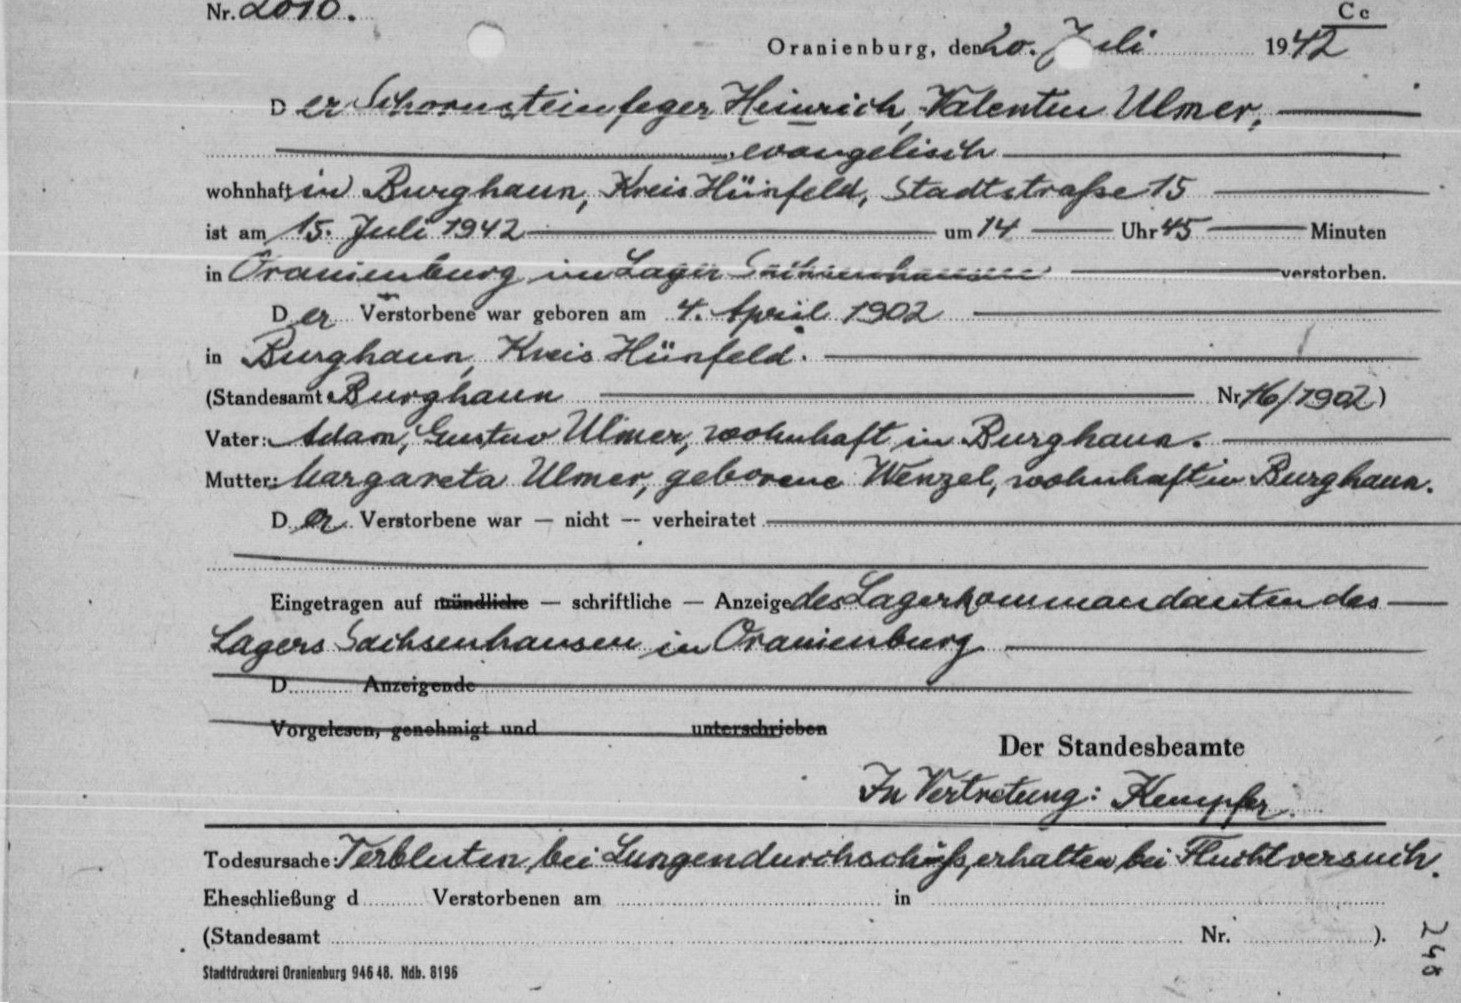 Nr. 2010.
Cc
Oranienburg, den 20. Juli 1942
Der Schornsteinfeger Heinrich, Valentin Ulmer,
evangelisch
wohnhaft in Burghaun, Kreis Hünfeld, Stadtstraße 15
ist am 15. Juli 1942 um 14 Uhr 45 Minuten
in Oranienburg im Lager Sachsenhausen verstorben.
Der Verstorbene war geboren am 4. April 1902
in Burghaun, Kreis Hünfeld.
(Standesamt Burghaun Nr. 16/1902)
Vater: Adam, Gustav Ulmer, wohnhaft in Burghaun.
Mutter: Margareta Ulmer, geborene Wenzel, wohnhaft in Burghaun.
Der Verstorbene war — nicht — verheiratet
Eingetragen auf mündliche — schriftliche — Anzeige des Lagerkommandanten des
Lagers Sachsenhausen in Oranienburg
D Anzeigende
Vorgelesen, genehmigt und unterschrieben
Der Standesbeamte
In Vertretung: Kempfer.
Todesursache: Verbluten bei Lungendurchschuß, erhalten bei Fluchtversuch.
Eheschließung d Verstorbenen am in
(Standesamt Nr. ).
Stadtdruckerei Oranienburg 946 48. Ndb. 8196
240